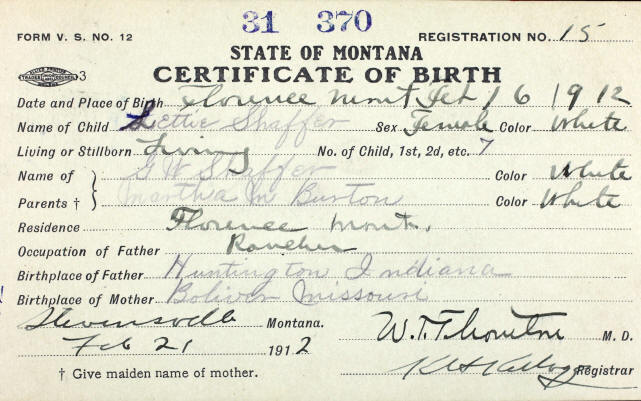 31 370
FORM V. S. NO. 12 REGISTRATION NO. 15
STATE OF MONTANA
3 CERTIFICATE OF BIRTH
Date and Place of Birth Florence Mont Feb 16 1912
Name of Child Lettie Shaffer Sex Female Color White
Living or Stillborn Living No. of Child, 1st, 2d, etc. 7
Name of G W Shaffer Color White
Parents † Martha M Burton Color White
Residence Florence Mont.
Occupation of Father Rancher
Birthplace of Father Huntington Indiana
Birthplace of Mother Boliver Missouri
Stevensville Montana. W. T. Thornton M. D.
Feb 21 1912 Registrar
† Give maiden name of mother.